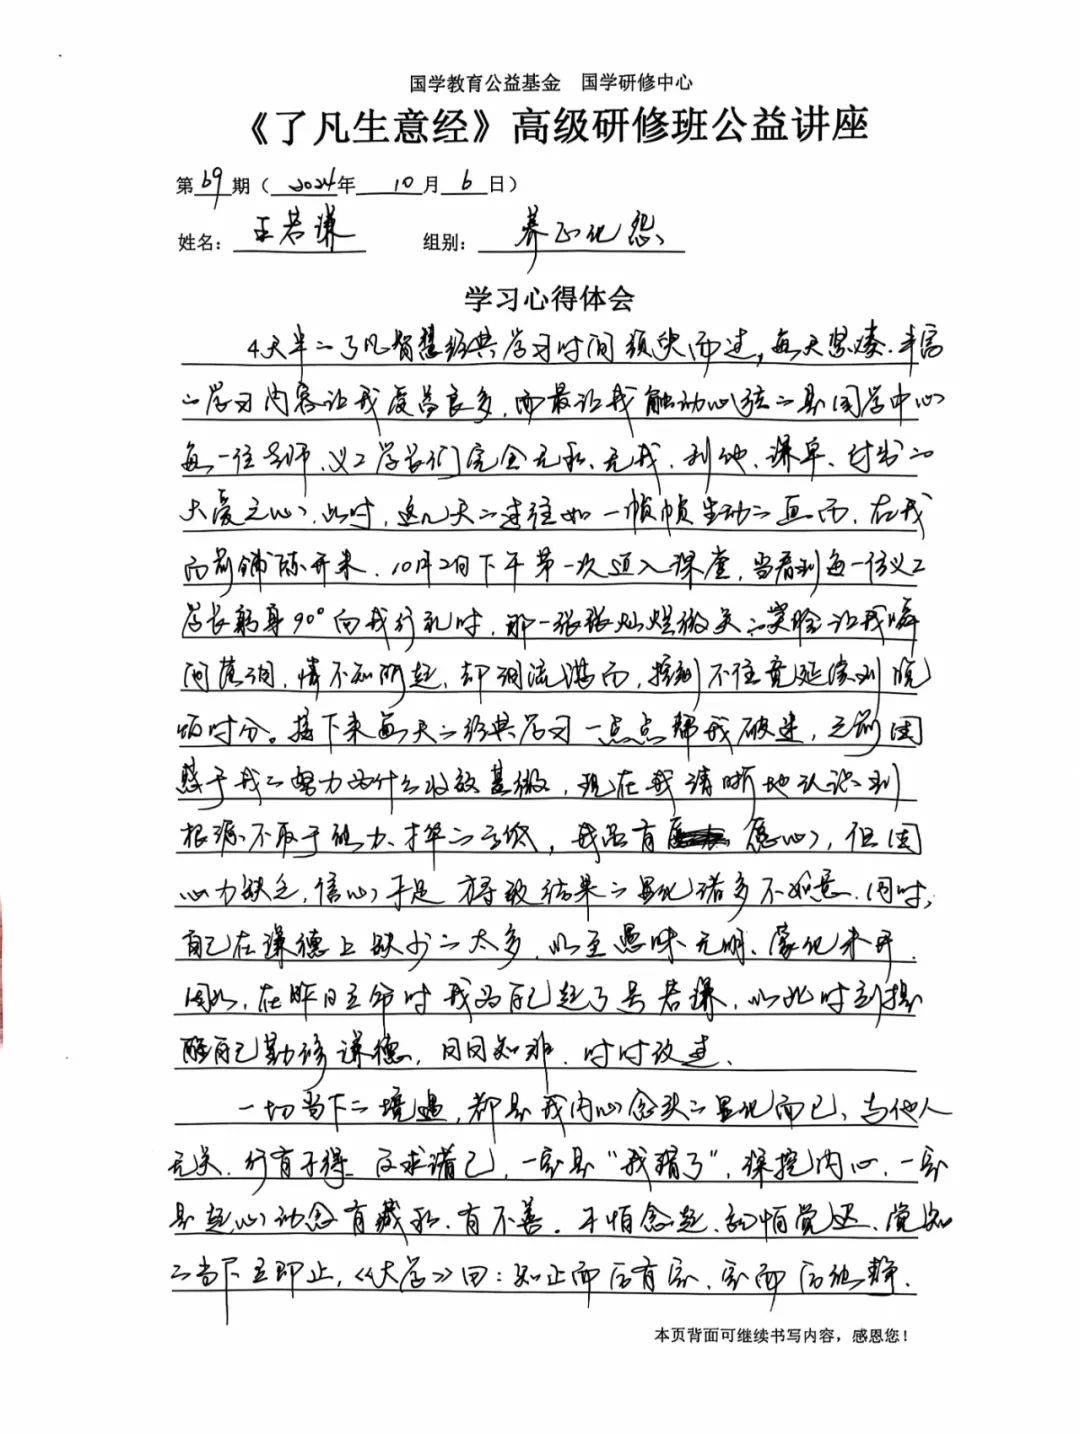 国学教育公益基金 国学研修中心
《了凡生意经》高级研修班公益讲座
第69期（2024年10月6日）
姓名：王若谦 组别：养正化怨
学习心得体会
4天半的了凡智慧经典学习时间须臾而过，每天紧凑、丰富
的学习内容让我受益良多，而最让我触动心弦的是国学中心
每一位老师、义工学长们完全无私、无我、利他、谦卑、付出的
大爱之心，此时，这几天的过往如一帧帧生动的画面，在我
面前铺陈开来，10月2日下午第一次迈入课堂，当看到每一位义工
学长躬身90°向我行礼时，那一张张灿烂微笑的笑脸让我瞬
间落泪，情不知所起，却泪流满面，控制不住竟延续到晚
饭时分。接下来每天的经典学习一点点帮我破迷，之前困
惑于我的努力为什么收效甚微，现在我清晰地认识到
根源不取于能力、才华的高低，我虽有愿心，但因
心力缺乏，信心于是 导致结果的显化诸多不如意，同时，
自己在谦德上缺少的太多，以至愚昧无明、蒙化未开，
因此，在昨日立命时我为自己起了号若谦，以此时刻提
醒自己勤修谦德，日日知非，时时改过。
一切当下的境遇，都是我内心念头的显化而已、与他人
无关，行有不得，反求诸己，一定是“我错了”，深挖内心，一定
是起心动念有藏私、有不善。不怕念起、就怕觉迟、觉知
的当下立即止，《大学》曰：知止而后有定、定而后能静、
本页背面可继续书写内容，感恩您！